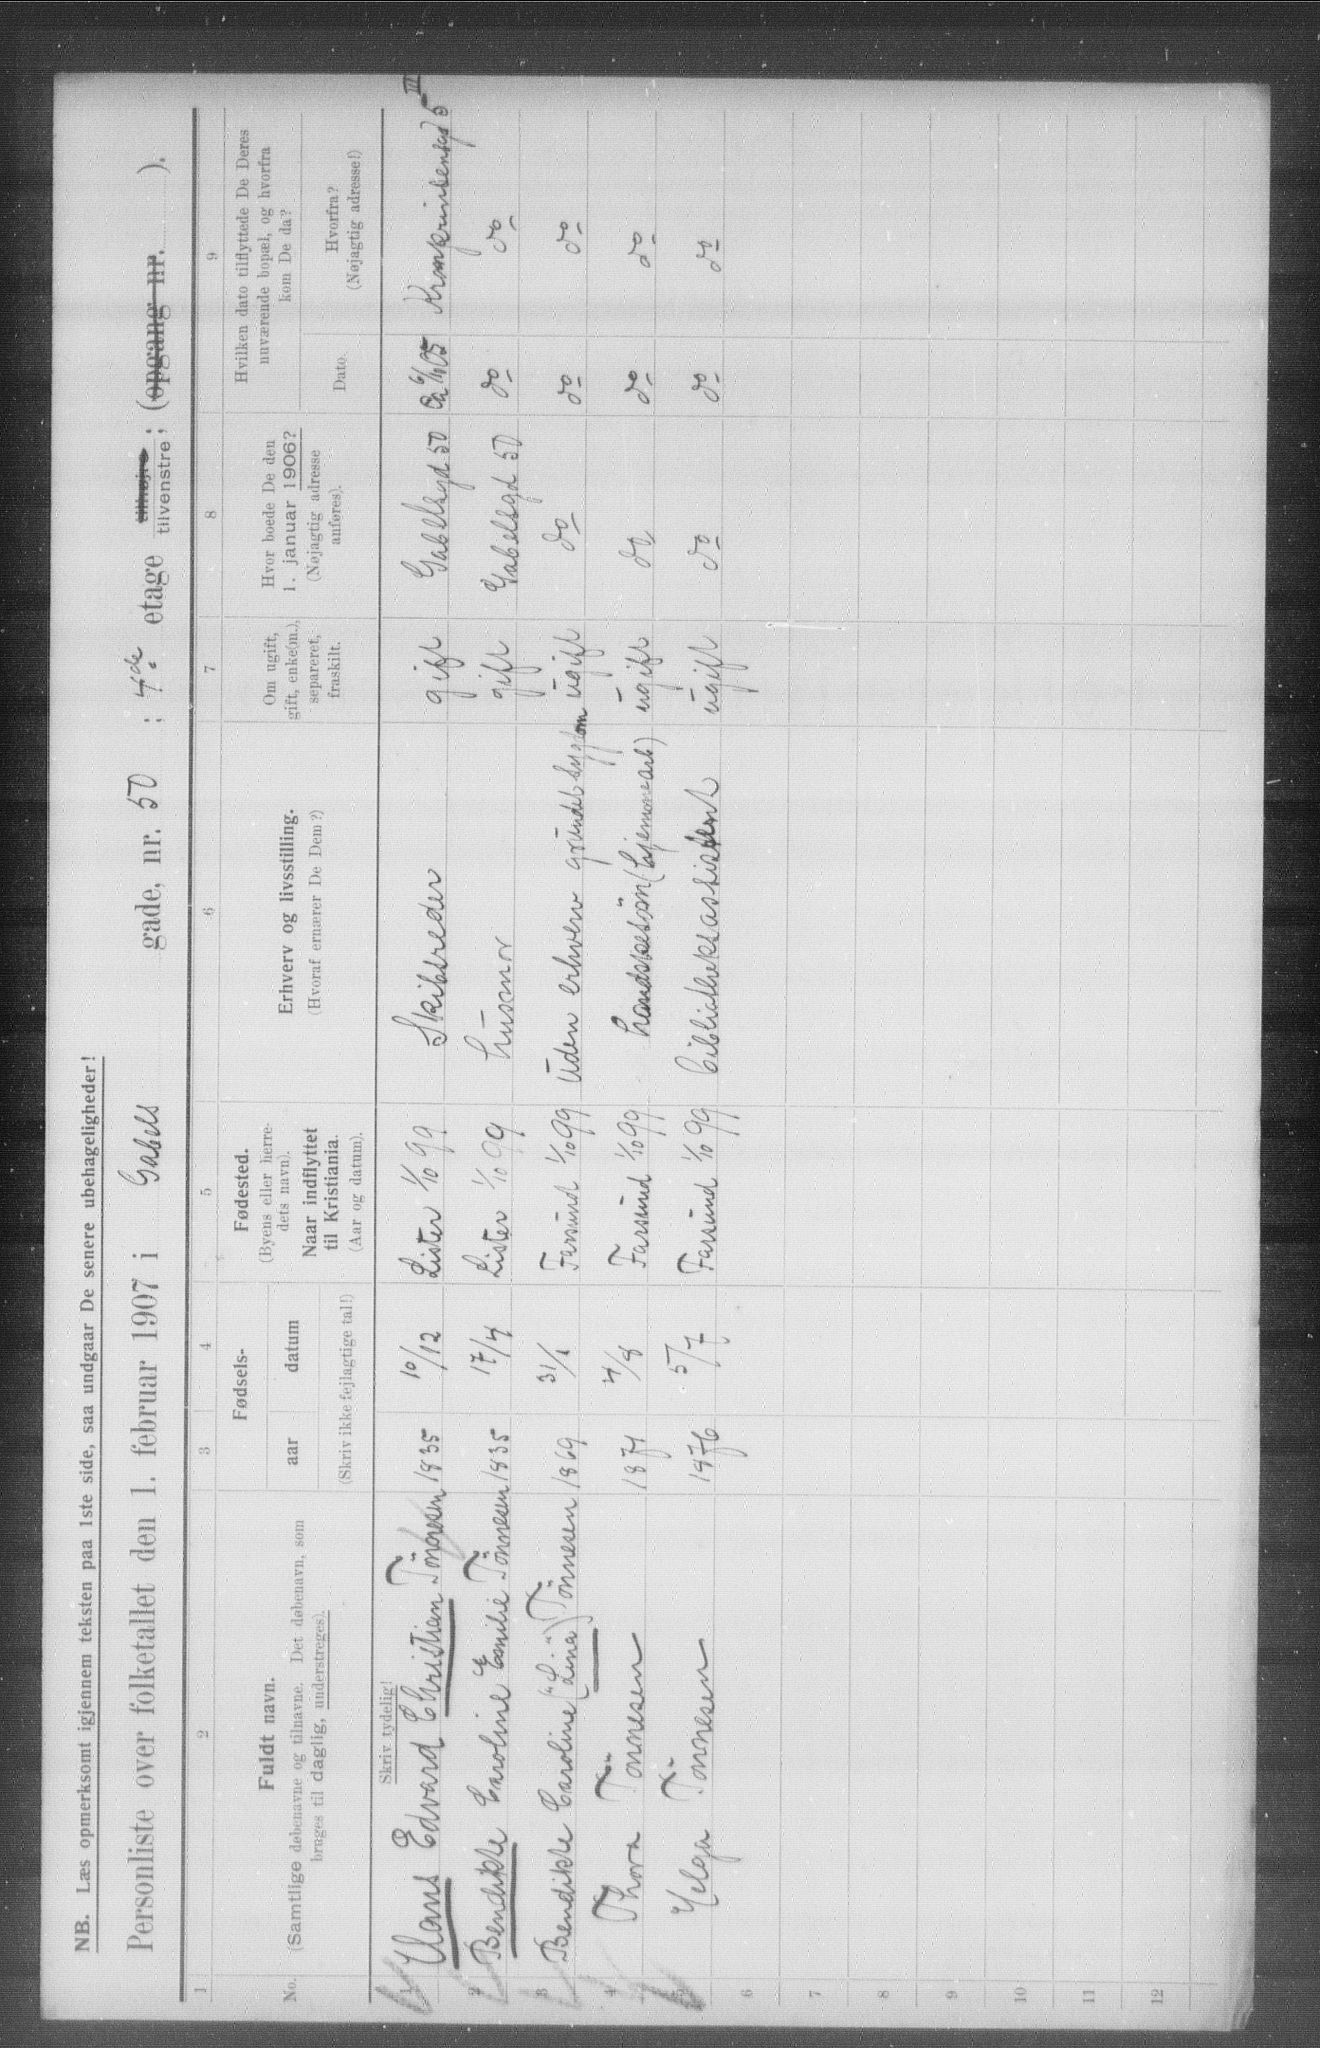 NB. Læs opmerksomt igjennem teksten paa 1ste side, saa undgaar De senere ubehageligheder!
Personliste over folketallet den 1. februar 1907 i Gabels gade, nr. 50 : 4de etage tilhøjre tilvenstre; (opgang nr. ).
1 2 3 4 5 6 7 8 9
No. Fuldt navn. (Samtlige døbenavne og tilnavne. Det døbenavn, som bruges til daglig, understreges). Fødsels- aar datum (Skriv ikke fejlagtige tal!) Fødested. (Byens eller herredets navn). Naar indflyttet til Kristiania. (Aar og datum). Erhverv og livsstilling. (Hvoraf ernærer De Dem?) Om ugift, gift, enke(m.), separeret, fraskilt. Hvor boede De den 1. januar 1906? (Nøjagtig adresse anføres). Hvilken dato tilflyttede De Deres nuværende bopæl, og hvorfra kom De da? Dato. Hvorfra? (Nøjagtig adresse!)
Skriv tydelig!
1 Hans Edvard Christian Tönnesen 1835 10/12 Lister 1/10 99 Skibsreder gift Gabelsgd 50 Ca 1/10 05 Kronprinsensgd 5 III
2 Bendikte Caroline Emilie Tönnesen 1835 17/4 Lister 1/10 99 husmor gift Gabelsgd 50 do do
3 Bendikte Caroline („Lina“) Tönnesen 1869 31/1 Farsund 1/10 99 Uden erhverv grundet sygdom ugift do do do
4 Thora Tönnesen 1871 4/8 Farsund 1/10 99 (hjemmearb) ugift do do do
5 Helga Tönnesen 1876 5/7 Farsund 1/10 99 bibliotheksassistent ugift do do do
6
7
8
9
10
11
12